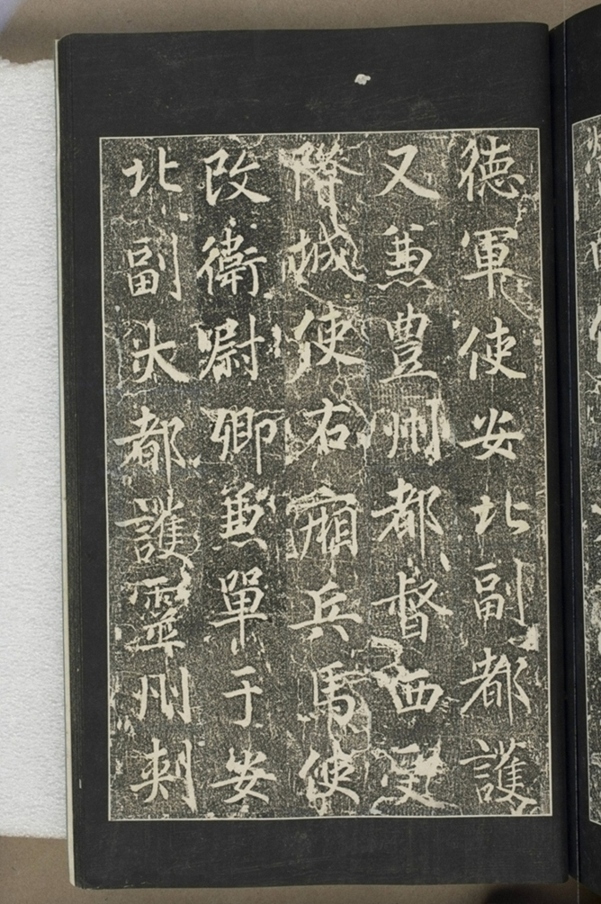 德軍使安北副都護
又兼豊州都督西受
降城使右廂兵馬使
改衛尉卿兼單于安
北副大都護靈州刺